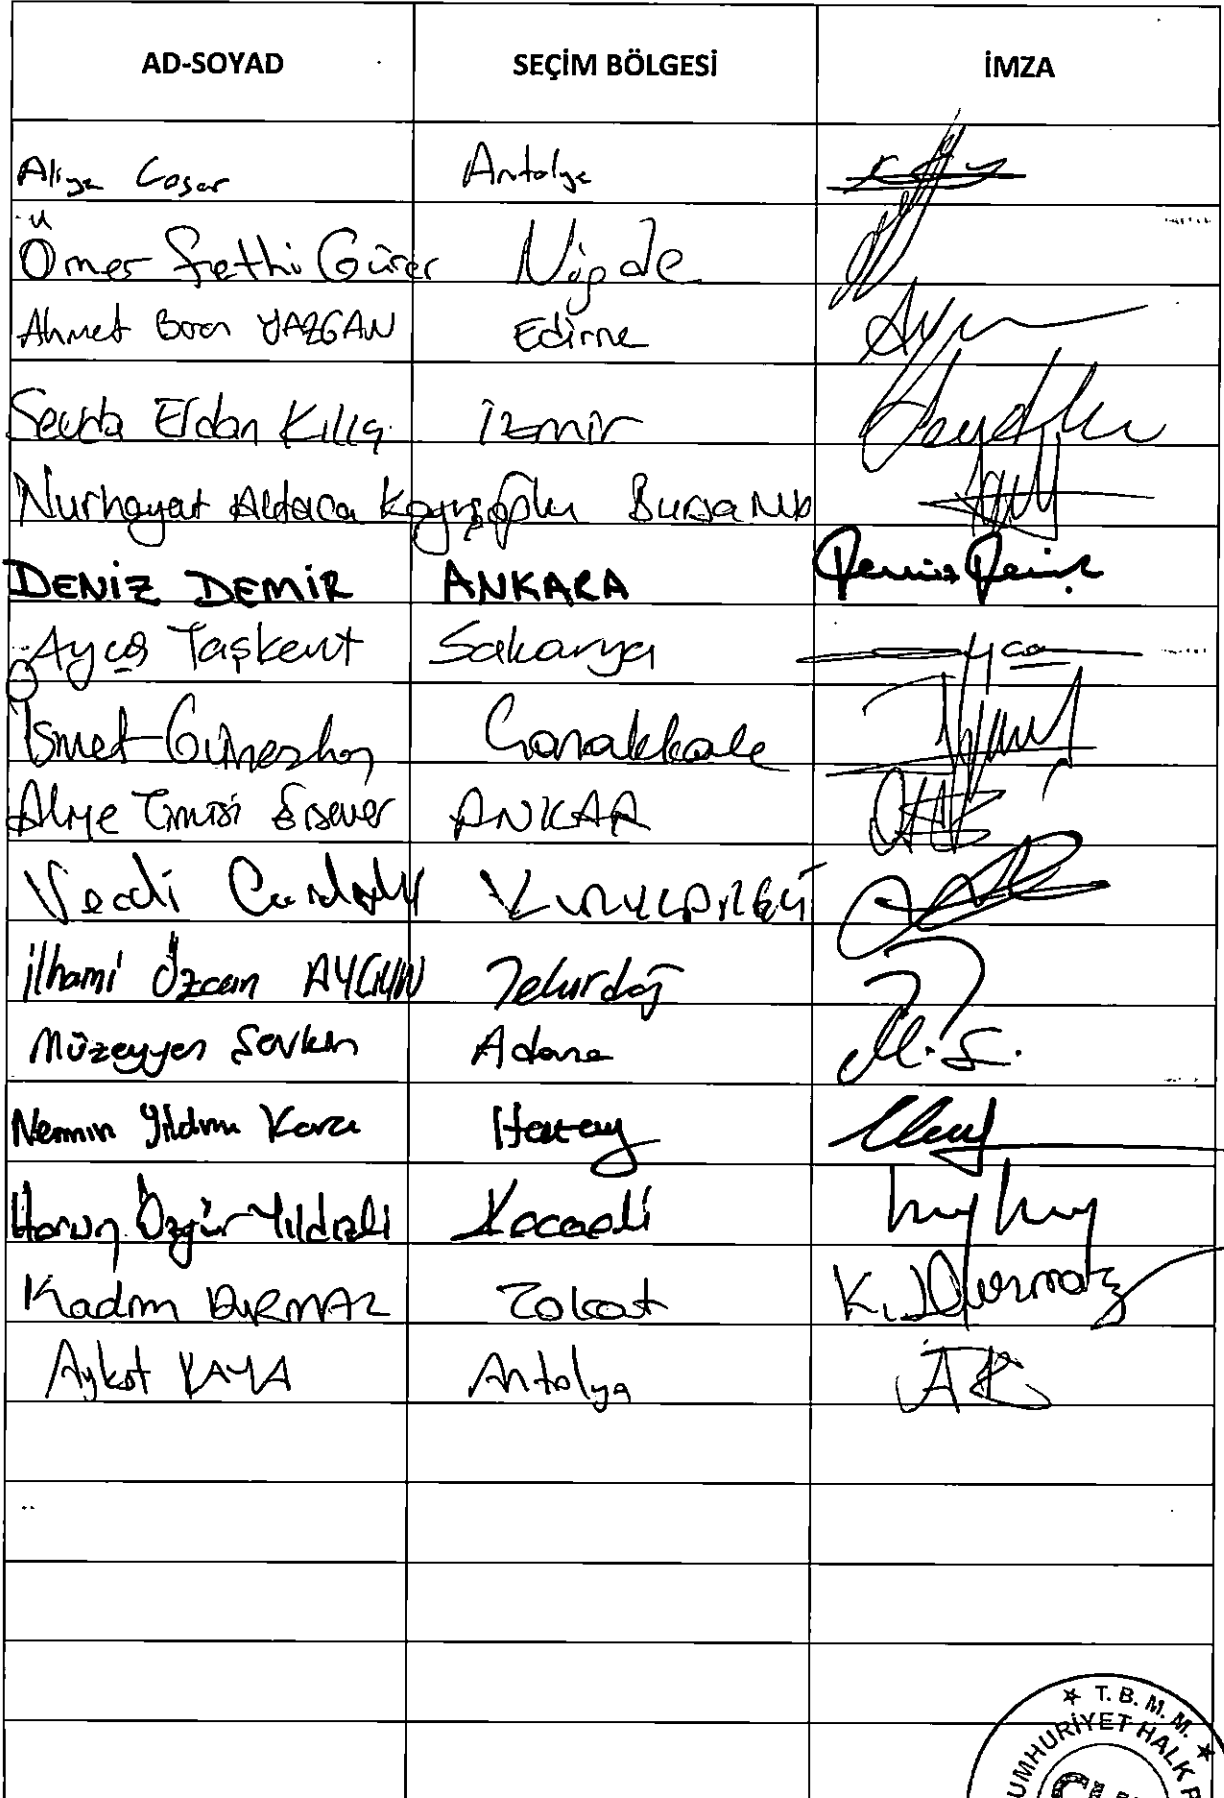 AD-SOYAD SEÇİM BÖLGESİ İMZA
Aliye Coşar Antalya
Ömer Fethi Gürer Niğde
Ahmet Baran YAZGAN Edirne
Sevda Erdan Kılıç İzmir
Nurhayat Altaca Kayışoğlu Bursa
DENİZ DEMİR ANKARA Deniz Demir
Ayça Taşkent Sakarya Ayça
İsmet Güneşhan Çanakkale
Aliye Timisi Ersever ANKARA
Vecdi
İlhami Özcan AYGUN Tekirdağ
Müzeyyen Şevkin Adana M.Ş.
Nermin Yıldırım Kara Hatay
Harun Özgür Yıldızlı Kocaeli
Kadim DURMAZ Tokat K. Durmaz
Aykut KAYA Antalya AK
★ T.B.M.M. ★
CUMHURİYET HALK P